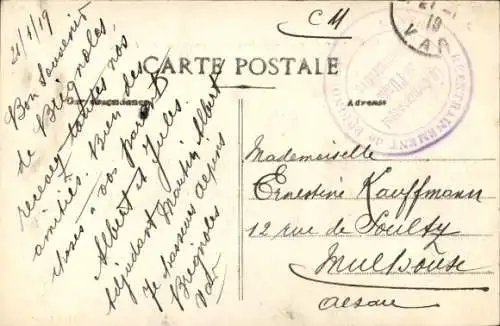 21/1/19
CM
21-1
19
VAR
CARTE POSTALE
Correspondance
Adresse
Bon Souvenir
de Brignoles,
recevez toutes nos
amitiés. Bien des
choses à vos parents
Albert et Jules.
Adjudant Martin Albert
7e chasseurs alpins
Brignoles
Var
Mademoiselle
Ernestine Kauffmann
12 rue de Soultz
Mulhouse
Alsace